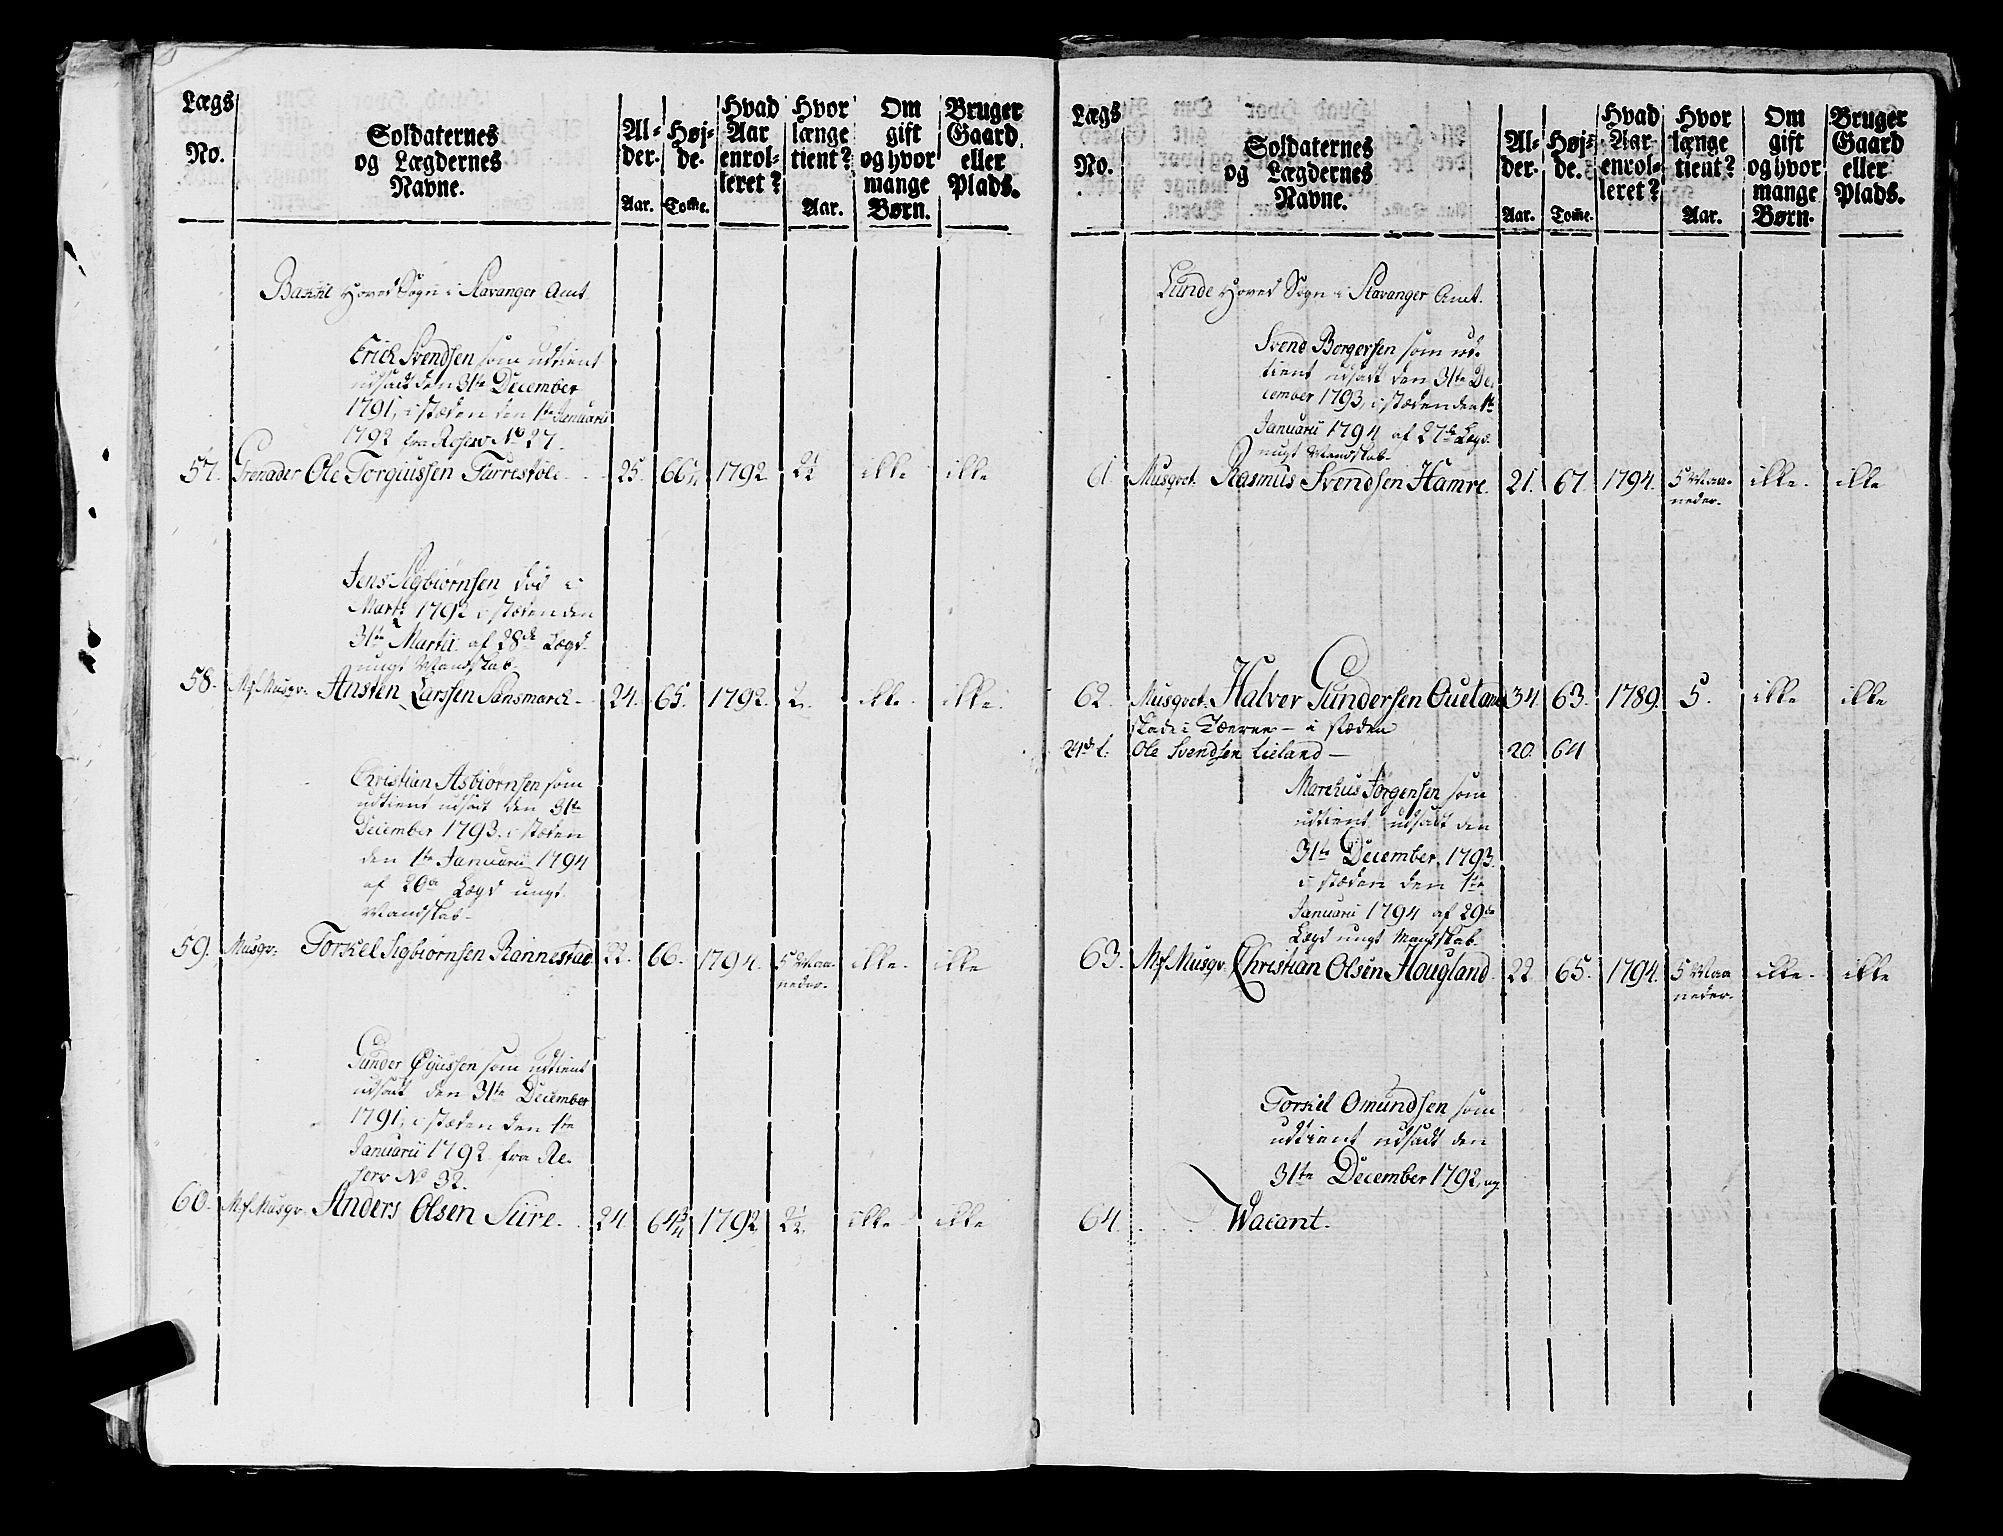 Lægs No. | Soldaternes og Lægdernes Navne. | Al-der. Aar. | Høj-de. Tom̃e. | Hvad Aar enrol-leret? | Hvor længe tient? Aar. | Om gift og hvor mange Børn. | Bruger Gaard eller Plads.
Hoved Sogn i Stavanger Amt
Erich Svendsen som udtient
udsadt den 31te December
1791, i stæden den 1te Januarii
1792 fra Reserv No 27.
57. Grenader Ole Torgiussen 25. 66 1792 ikke ikke
Jens Sigbiørnsen død i
Martz 1792 i stæden den
31te Martii af 28de Lægd
ungt Mandskab
58. Mf Musqv: Ansten Larssen Sansmarck 24. 65. 1792. 2 ikke ikke.
Christian Asbiørnsen som
udtient udsadt den 31te
December 1793. i stæden
den 1te Januarii 1794
af Lægd ungt
Mandskab
59. Musqv: Torkel Sigbiørnsen Rannestad 22. 66. 1794. 5 Maa-
neder. ikke. ikke
Gunder som udtient
udsadt den 31te December
1791, i stæden den 1te
Januarii 1792 fra Re-
serv No 32.
60. Mf Musqv: Anders Olsen Siire. 24 64 1792 ikke ikke
Lægs No. | Soldaternes og Lægdernes Navne. | Al-der. Aar. | Høj-de. Tom̃e. | Hvad Aar enrol-leret? | Hvor længe tient? Aar. | Om gift og hvor mange Børn. | Bruger Gaard eller Plads.
Lunde Hoved Sogn i Stavanger Amt.
Svend Borgersen som ud-
tient udsadt den 31te De-
cember 1793, i stæden den 1te
Januarii 1794 af 27de Lægd
ungt Mandskab
61. Musqvt. Rasmus Svendsen Hamre. 21. 67. 1794. 5 Maa-
neder. ikke. ikke
62. Musqvt. Halver Gundersen Oueland 34. 63. 1789. 5. ikke ikke
i stæden
Ole Svendsen Lieland 20. 64
Marckus Jørgensen som
udtient udsadt den
31te December, 1793.
i stæden den 1te
Januarii 1794 af 29de
Lægd ungt Mandskab
63. Mf Musqv. Christian Olsen Hougland 22 65. 1794. 5 Maa
neder. ikke. ikke
Torkil Omundsen som
udtient udsadt den
31te December 1792, og
64. Wacant.